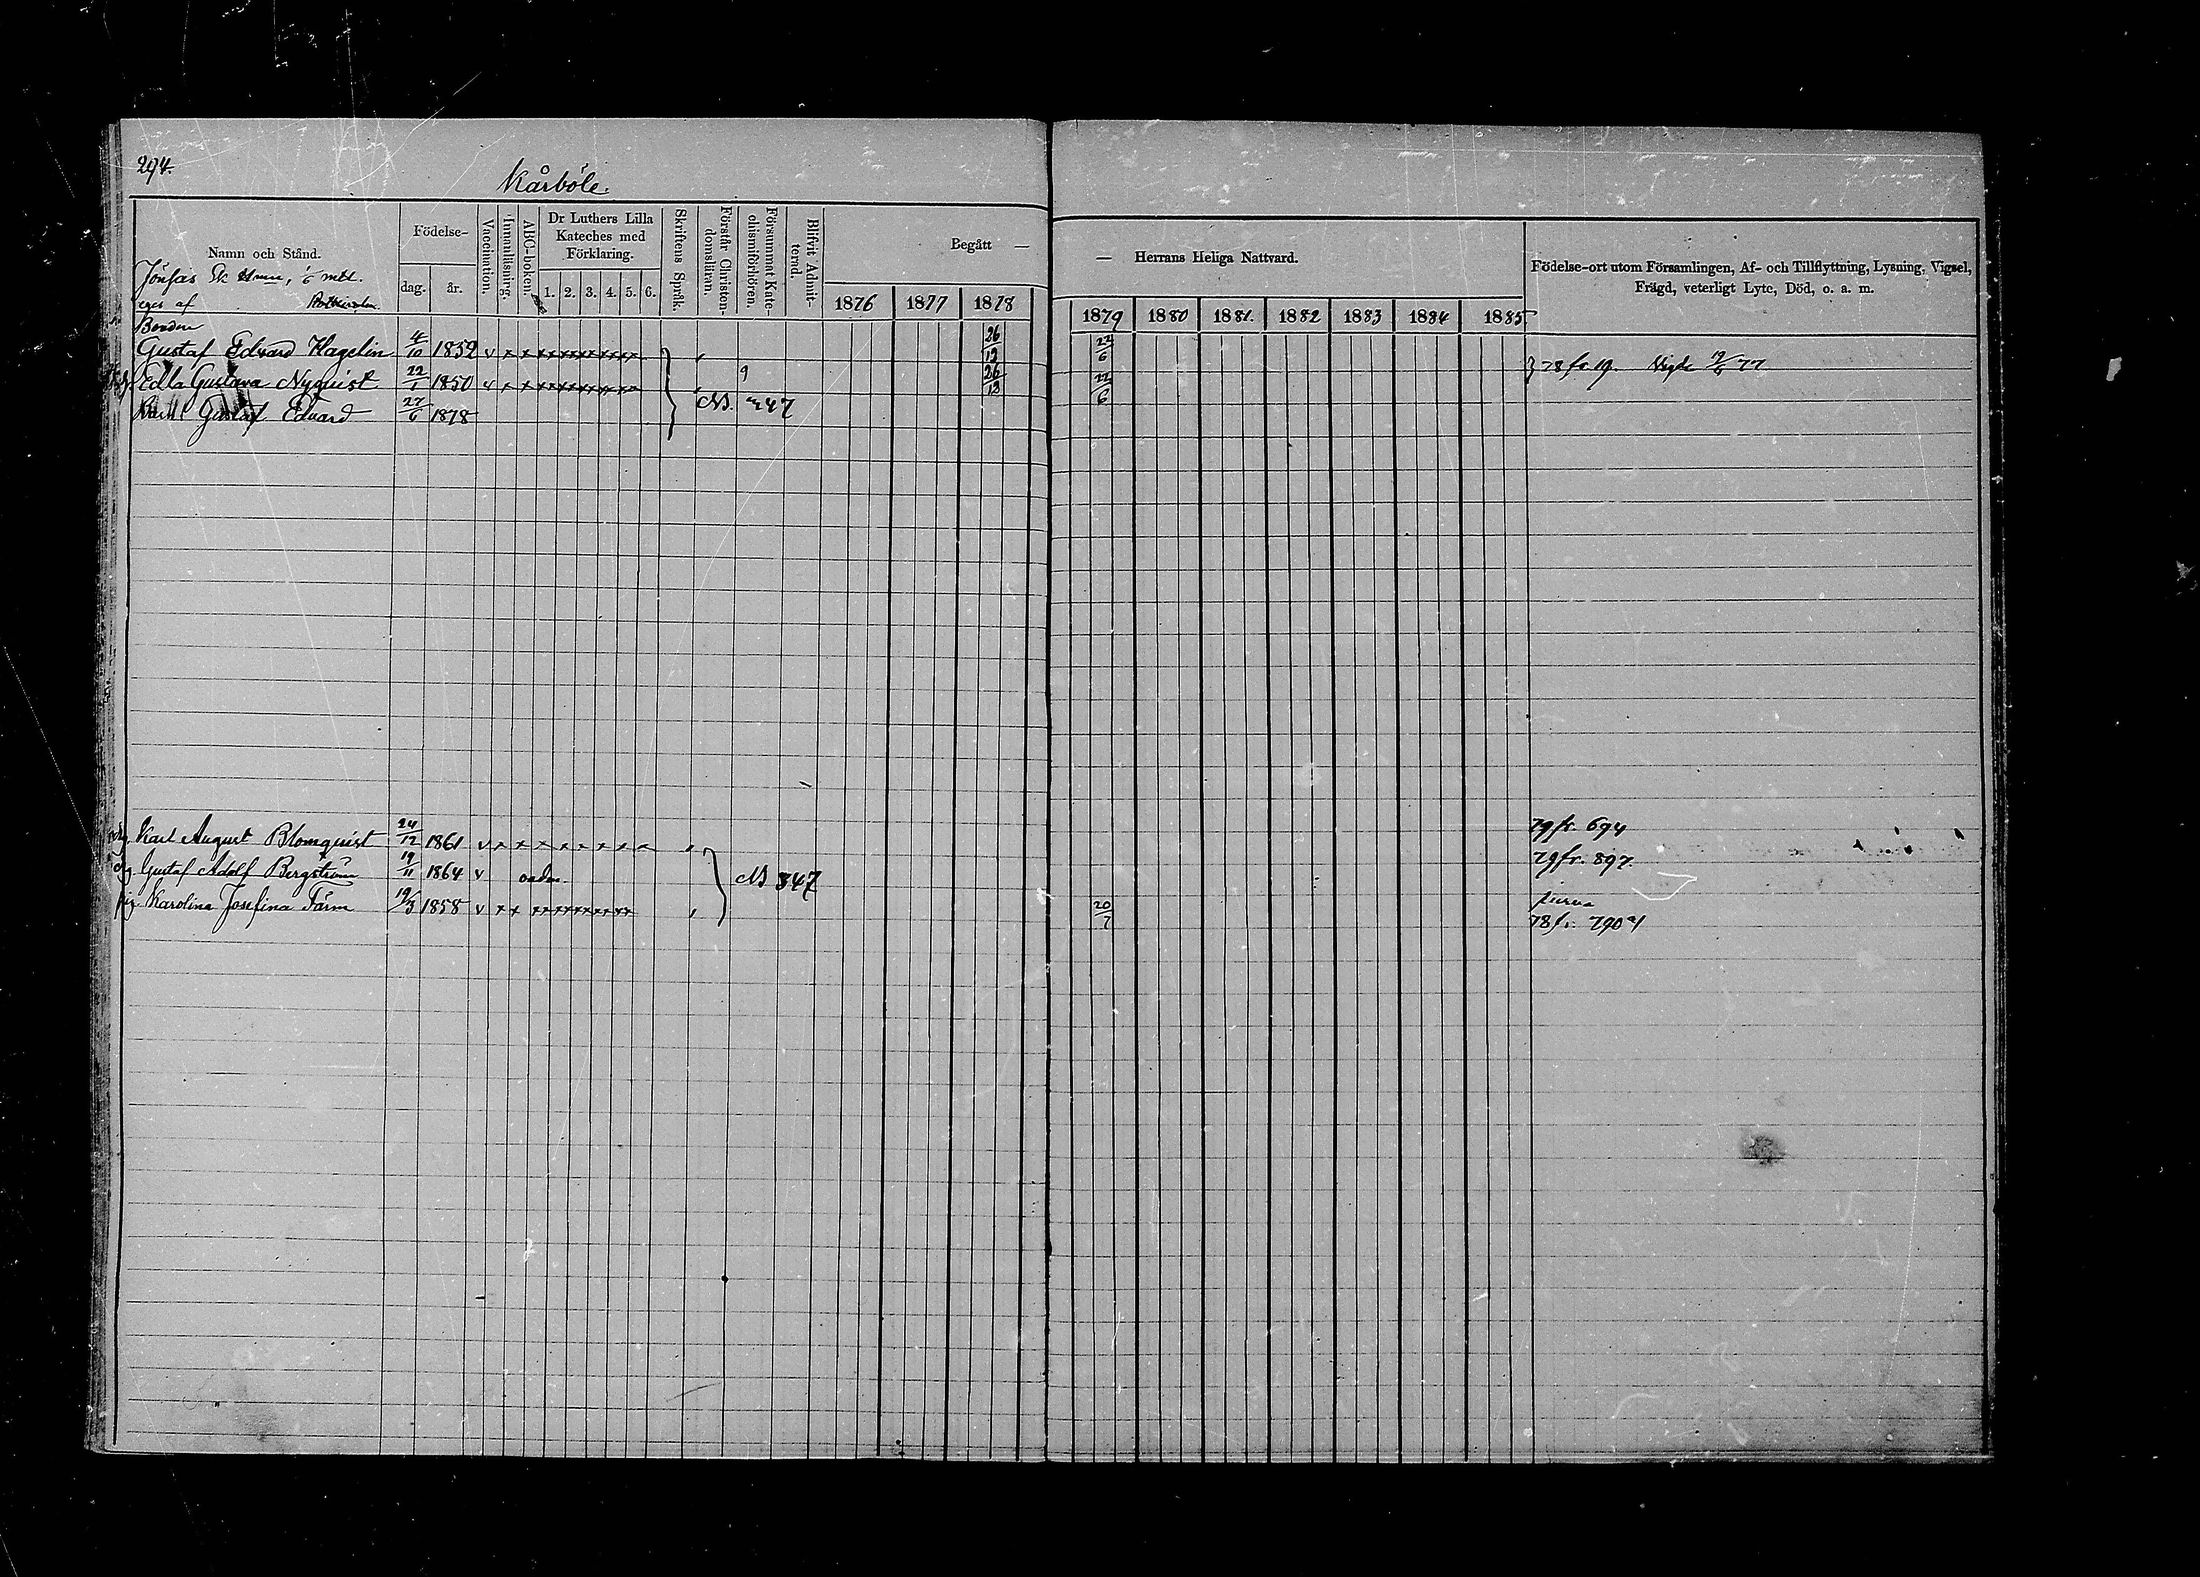 294.
Kårböle.
Namn och Stånd.
Födelse-
dag.
år.
Vaccination.
Innanläsning.
ABC-boken.
Dr Luthers Lilla Kateches med Förklaring.
1. 2. 3. 4. 5. 6.
Skriftens Språk.
Förstår Christendomsläran.
Försummat Katechismiförhören.
Blifvit Admitterad.
Begått —
1876 1877 1878
— Herrans Heliga Nattvard.
1879 1880 1881. 1882 1883 1884 1885.
Födelse-ort utom Församlingen, Af- och Tillflyttning, Lysning, Vigsel, Frägd, veterligt Lyte, Död, o. a. m.
Jönsas
eges af
Bonden
Gustaf Edvard Hagelin 4/10 1852 v x x x x x x x x 26/12 22/6 78 fr 19. Vigde 19/6 77
Edla Gustava Nyqvist 22/1 1850 v x x x x x x x x 9 26/12 22/6
Karl Gustaf Edvard 27/6 1878 NB. 347
Karl August Blomqvist 24/12 1861 v x x x x x x x x 79 fr. 694
Gustaf Adolf Bergström 19/11 1864 v NB 347 79 fr. 897.
pig. Karolina Josefina Färm 19/3 1858 v x x x x x x x x 20/7
78 fr. 790